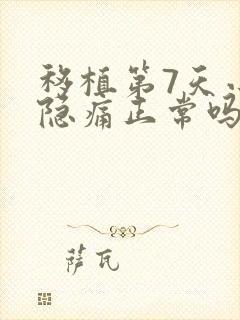 移植第7天
隐痛正常吗
萨瓦